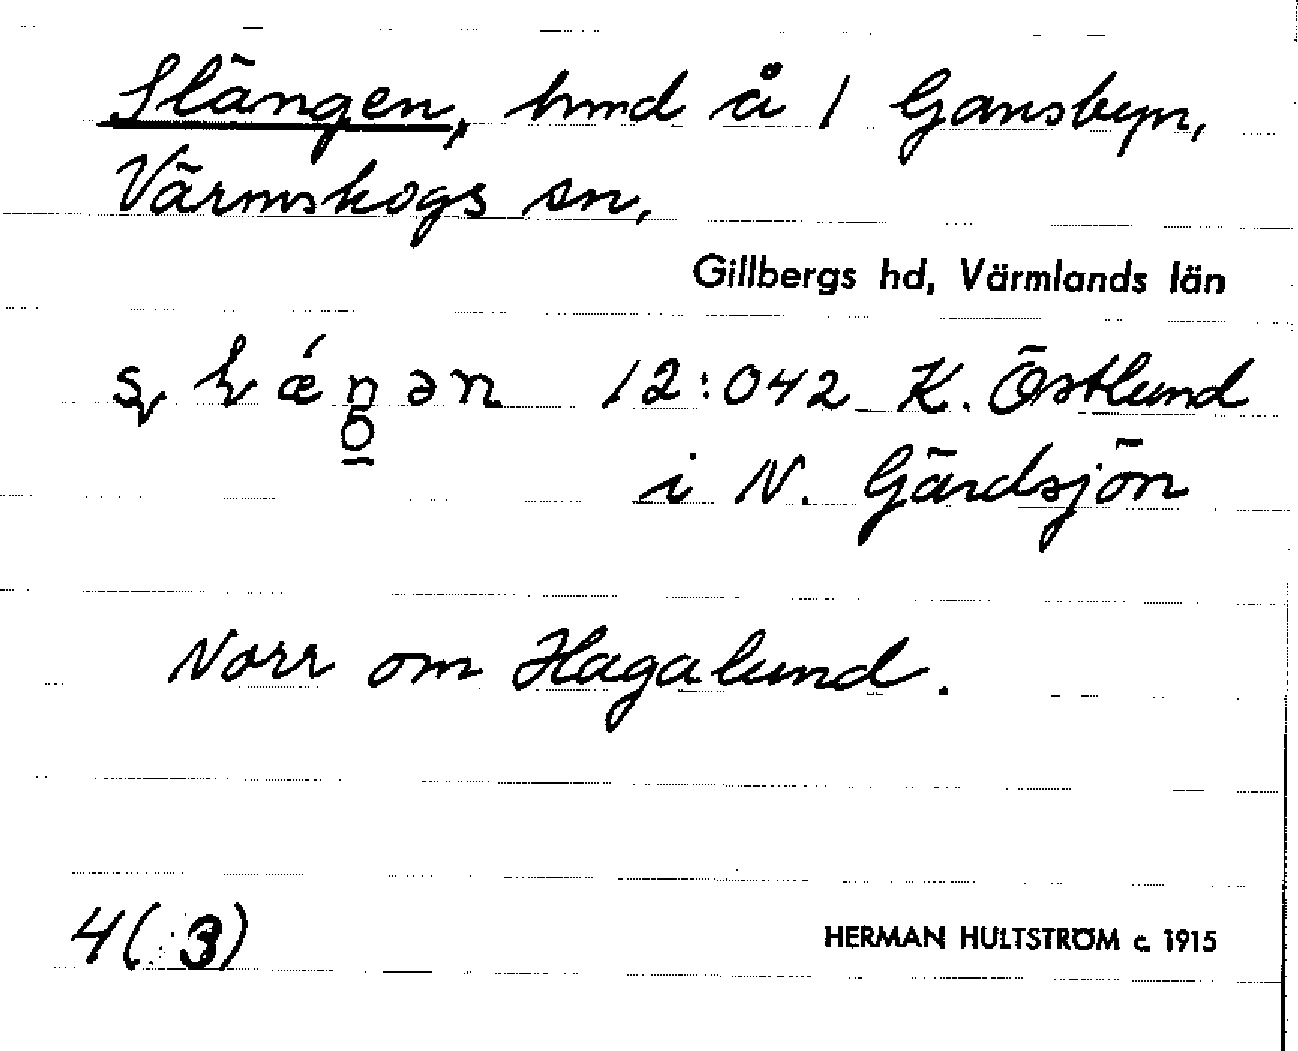 Slängen, hmd å 1 Gansbyn,
Värmskogs sn,
Gillbergs hd, Värmlands län
12:042 K. Östlund
i N. Gärdsjön
Norr om Hagalund.
4(3)
HERMAN HULTSTRÖM c. 1915